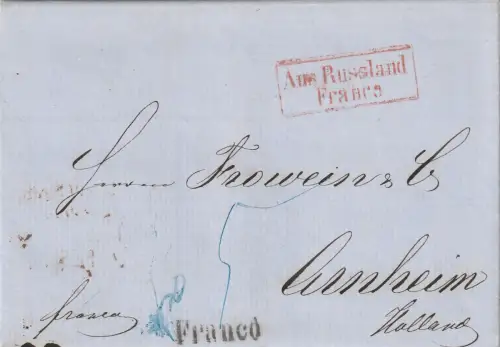 Aus Russland
Franco
Herren Frowein & C.
Arnheim
Holland
franco
Franco